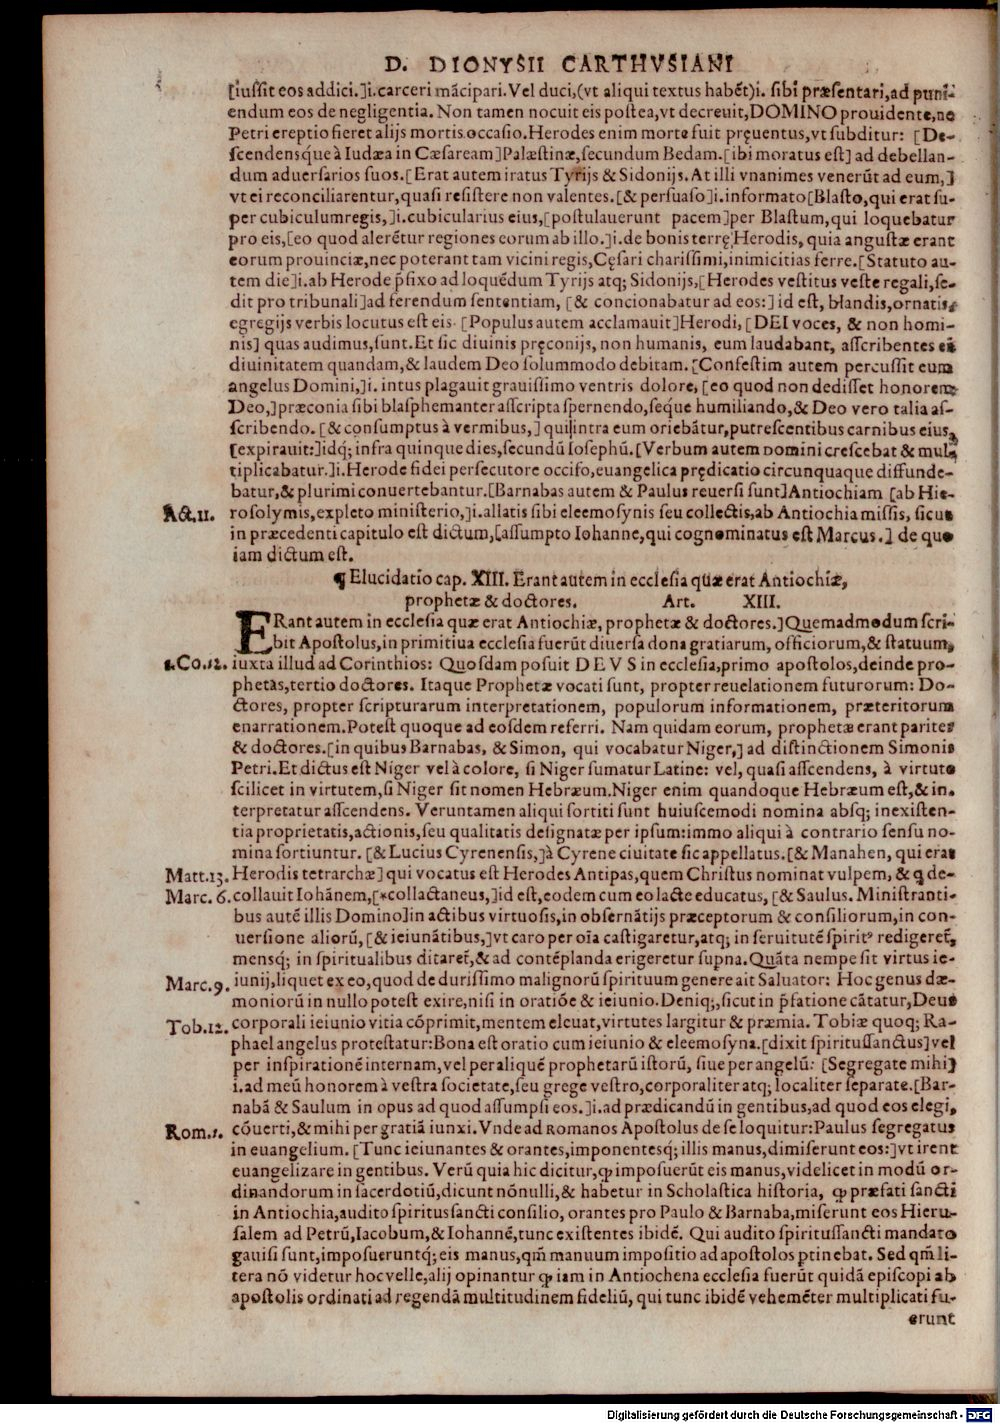 D. DIONYSII CARTHVSIANI
[iussit eos addici.]i. carceri mãcipari. Vel duci,(vt aliqui textus habẽt)i. sibi præsentari, ad puni-
endum eos de negligentia. Non tamen nocuit eis postea, vt decreuit, DOMINO prouidente, ne
Petri ereptio fieret alijs mortis occasio. Herodes enim morte fuit pręuentus, vt subditur: [De-
scendensq́ue à Iudæa in Cæsaream] Palæstinæ, secundum Bedam. [ibi moratus est] ad debellan-
dum aduersarios suos. [Erat autem iratus Tyrijs & Sidonijs. At illi vnanimes venerũt ad eum,]
vt ei reconciliarentur, quasi resistere non valentes. [& persuaso]i. informato [Blasto, qui erat su-
per cubiculum regis,]i. cubicularius eius, [postulauerunt pacem] per Blastum, qui loquebatur
pro eis, [eo quod alerẽtur regiones eorum ab illo.]i. de bonis terrę Herodis, quia angustæ erant
eorum prouinciæ, nec poterant tam vicini regis, Cęsari charissimi, inimicitias ferre. [Statuto au-
tem die]i. ab Herode p̃fixo ad loquẽdum Tyrijs atq; Sidonijs, [Herodes vestitus veste regali, se-
dit pro tribunali] ad ferendum sententiam, [& concionabatur ad eos:] id est, blandis, ornatis,
egregijs verbis locutus est eis. [Populus autem acclamauit] Herodi, [DEI voces, & non homi-
nis] quas audimus, sunt. Et sic diuinis pręconijs, non humanis, eum laudabant, asscribentes ei
diuinitatem quandam, & laudem Deo solummodo debitam. [Confestim autem percussit eum
angelus Domini,]i. intus plagauit grauissimo ventris dolore, [eo quod non dedisset honorem
Deo,] præconia sibi blasphemanter asscripta spernendo, seque humiliando, & Deo vero talia as-
scribendo. [& consumptus à vermibus,] qui intra eum oriebãtur, putrescentibus carnibus eius,
[expirauit:] idq; infra quinque dies, secundũ Iosephũ. [Verbum autem DOMINI crescebat & mul-
tiplicabatur.]i. Herode fidei persecutore occiso, euangelica prędicatio circunquaque diffunde-
batur, & plurimi conuertebantur. [Barnabas autem & Paulus reuersi sunt] Antiochiam [ab Hie-
Act. 11. rosolymis, expleto ministerio,]i. allatis sibi eleemosynis seu collectis, ab Antiochia missis, sicut
in præcedenti capitulo est dictum, [assumpto Iohanne, qui cognominatus est Marcus.] de quo
iam dictum est.
¶ Elucidatio cap. XIII. Erant autem in ecclesia quæ erat Antiochiæ,
prophetæ & doctores. Art. XIII.
ERant autem in ecclesia quæ erat Antiochiæ, prophetæ & doctores.] Quemadmodum scri-
bit Apostolus, in primitiua ecclesia fuerũt diuersa dona gratiarum, officiorum, & statuum,
1. Co. 12. iuxta illud ad Corinthios: Quosdam posuit DEVS in ecclesia, primo apostolos, deinde pro-
phetas, tertio doctores. Itaque Prophetæ vocati sunt, propter reuelationem futurorum: Do-
ctores, propter scripturarum interpretationem, populorum informationem, præteritorum
enarrationem. Potest quoque ad eosdem referri. Nam quidam eorum, prophetæ erant pariter
& doctores. [in quibus Barnabas, & Simon, qui vocabatur Niger,] ad distinctionem Simonis
Petri. Et dictus est Niger vel à colore, si Niger sumatur Latine: vel, quasi asscendens, à virtute
scilicet in virtutem, si Niger sit nomen Hebræum. Niger enim quandoque Hebræum est, & in-
terpretatur asscendens. Veruntamen aliqui sortiti sunt huiuscemodi nomina absq; inexisten-
tia proprietatis, actionis, seu qualitatis designatæ per ipsum: immo aliqui à contrario sensu no-
mina sortiuntur. [& Lucius Cyrenensis,] à Cyrene ciuitate sic appellatus. [& Manahen, qui erat
Matt. 13. Herodis tetrarchæ] qui vocatus est Herodes Antipas, quem Christus nominat vulpem, & q̃ de-
Marc. 6. collauit Iohãnem, [*collactaneus,] id est, eodem cum eo lacte educatus, [& Saulus. Ministranti-
bus autẽ illis Domino] in actibus virtuosis, in obseruãtijs præceptorum & consiliorum, in con-
uersione aliorũ, [& ieiunãtibus,] vt caro per oĩa castigaretur, atq; in seruitutẽ spiritꝰ redigeret̃,
mensq; in spiritualibus ditaret̃, & ad contẽplanda erigeretur supna. Quãta nempe sit virtus ie-
Marc. 9. iunij, liquet ex eo, quod de durissimo malignorũ spirituum genere ait Saluator: Hoc genus dæ-
moniorũ in nullo potest exire, nisi in oratiõe & ieiunio. Deniq;, sicut in p̃fatione cãtatur, Deus
Tob. 12. corporali ieiunio vitia cõprimit, mentem eleuat, virtutes largitur & præmia. Tobiæ quoq; Ra-
phael angelus protestatur: Bona est oratio cum ieiunio & eleemosyna. [dixit spiritussanctus] vel
per inspirationẽ internam, vel per aliquẽ prophetarũ istorũ, siue per angelũ: [Segregate mihi]
i. ad meũ honorem à vestra societate, seu grege vestro, corporaliter atq; localiter separate. [Bar-
nabã & Saulum in opus ad quod assumpsi eos.]i. ad prædicandũ in gentibus, ad quod eos elegi,
Rom. 1. cõuerti, & mihi per gratiã iunxi. Vnde ad ROMANOS Apostolus de se loquitur: Paulus segregatus
in euangelium. [Tunc ieiunantes & orantes, imponentesq; illis manus, dimiserunt eos:] vt irent
euangelizare in gentibus. Verũ quia hic dicitur, ꝙ imposuerũt eis manus, videlicet in modũ or-
dinandorum in sacerdotiũ, dicunt nõnulli, & habetur in Scholastica historia, ꝙ præfati sancti
in Antiochia, audito spiritus sancti consilio, orantes pro Paulo & Barnaba, miserunt eos Hieru-
salem ad Petrũ, Iacobum, & Iohannẽ, tunc existentes ibidẽ. Qui audito spiritussancti mandato
gauisi sunt, imposueruntq́; eis manus, qm̃ manuum impositio ad apostolos ptinebat. Sed qm̃ li-
tera nõ videtur hoc velle, alij opinantur ꝙ iam in Antiochena ecclesia fuerũt quidã episcopi ab
apostolis ordinati ad regendã multitudinem fideliũ, qui tunc ibidẽ vehemẽter multiplicati fu-
erunt
Digitalisierung gefördert durch die Deutsche Forschungsgemeinschaft - DFG